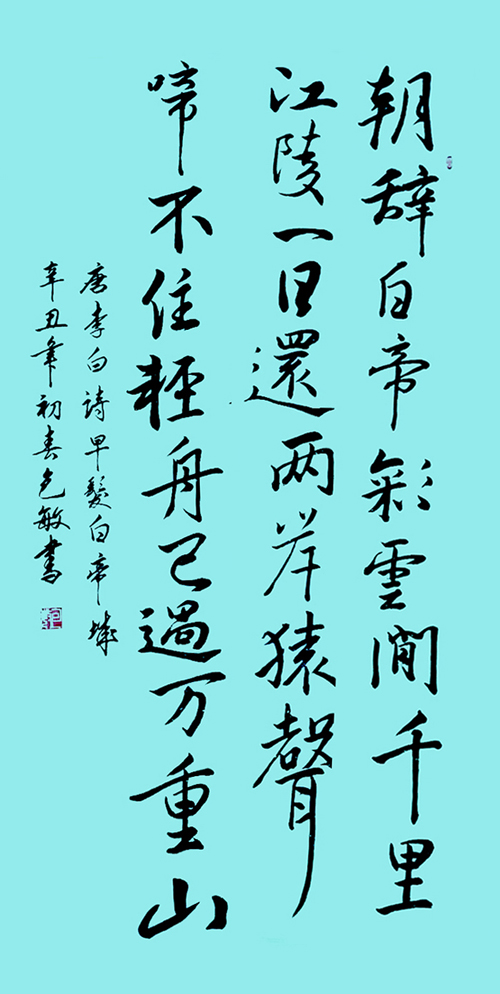 朝辞白帝彩雲間千里
江陵一日還两岸猿聲
啼不住輕舟已過万重山
唐李白詩早發白帝城
辛丑年初春光敏書